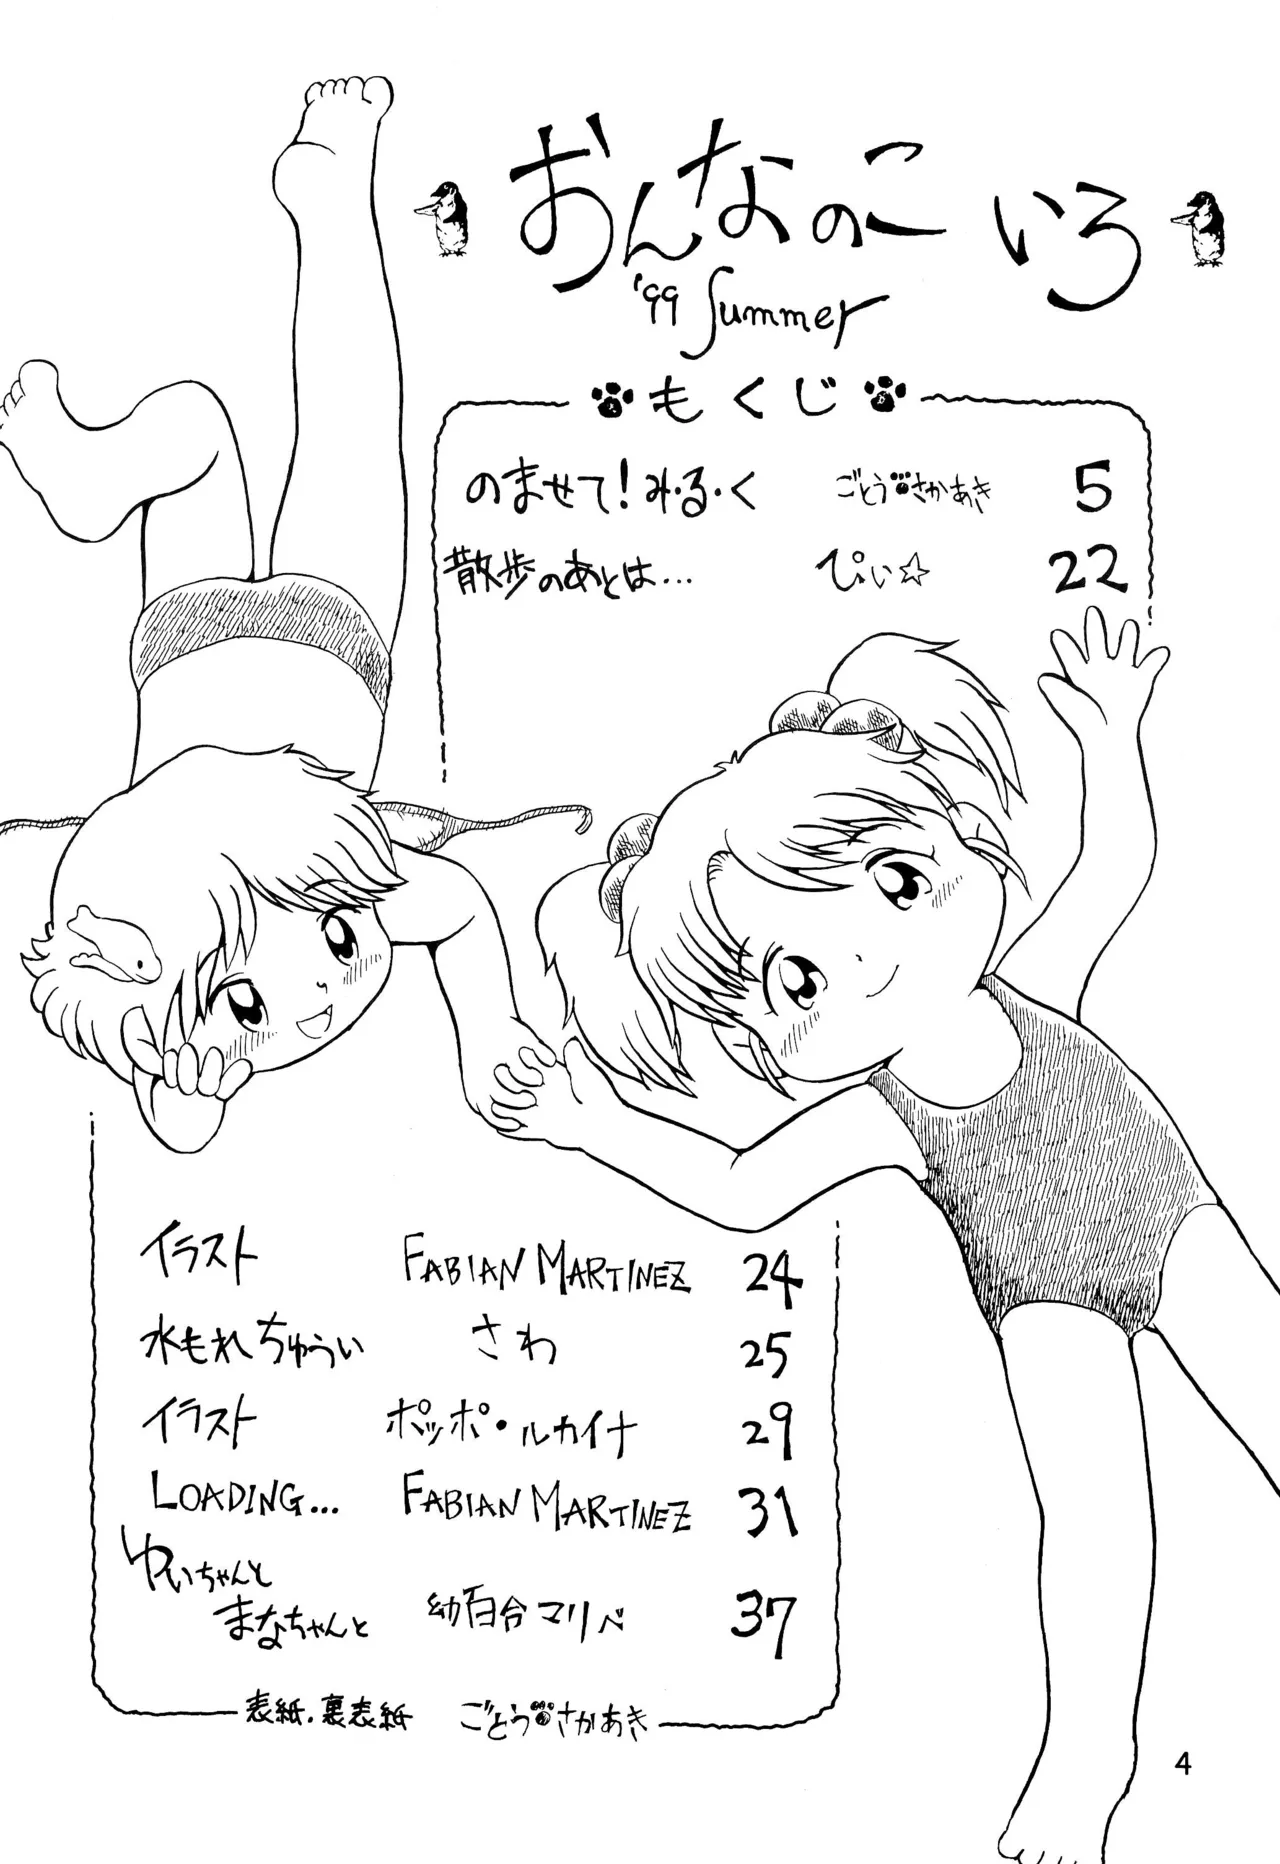 おんなのこ いろ
'99 Summer
もくじ
のませて!み・る・く ごとうさかあき 5
散歩のあとは… ぴぃ☆ 22
イラスト FABIAN MARTINEZ 24
水もれちゅうい さわ 25
イラスト ポッポ・ルカイナ 29
LOADING... FABIAN MARTINEZ 31
ゆいちゃんと
まなちゃんと 幼百合マリベ 37
表紙.裏表紙 ごとうさかあき
4